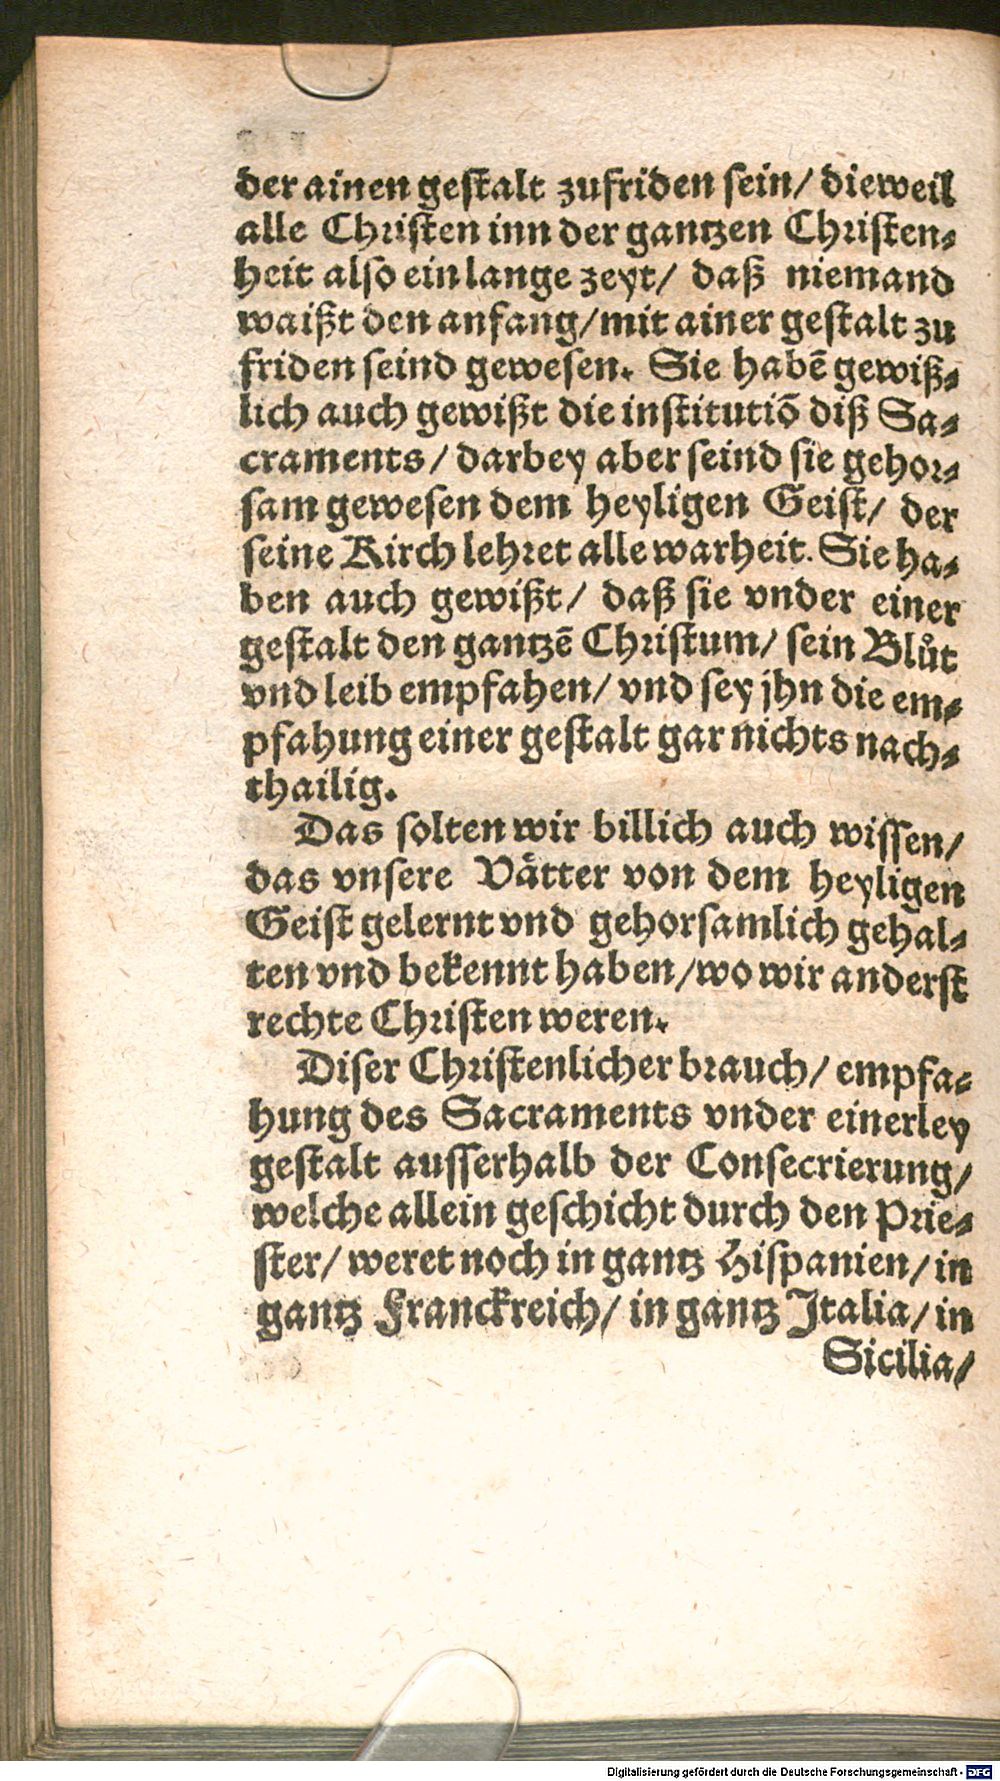 der ainen gestalt zufriden sein/ dieweil
alle Christen inn der gantzen Christen⸗
heit also ein lange zeyt/ daß niemand
waißt den anfang/mit ainer gestalt zu
friden seind gewesen. Sie habē gewiß⸗
lich auch gewißt die institutiō diß Sa⸗
craments/ darbey aber seind sie gehor⸗
sam gewesen dem heyligen Geist/ der
seine Kirch lehret alle warheit. Sie ha⸗
ben auch gewißt/ daß sie vnder einer
gestalt den gantzē Christum/ sein Blůt
vnd leib empfahen/ vnd sey jhn die em⸗
pfahung einer gestalt gar nichts nach⸗
thailig.
Das solten wir billich auch wissen/
das vnsere Vaͤtter von dem heyligen
Geist gelernt vnd gehorsamlich gehal⸗
ten vnd bekennt haben/wo wir anderst
rechte Christen weren.
Diser Christenlicher brauch/ empfa⸗
hung des Sacraments vnder einerley
gestalt ausserhalb der Consecrierung/
welche allein geschicht durch den Prie⸗
ster/ weret noch in gantz Hispanien/ in
gantz Franckreich/ in gantz Italia/ in
Sicilia/
Digitalisierung gefördert durch die Deutsche Forschungsgemeinschaft - DFG